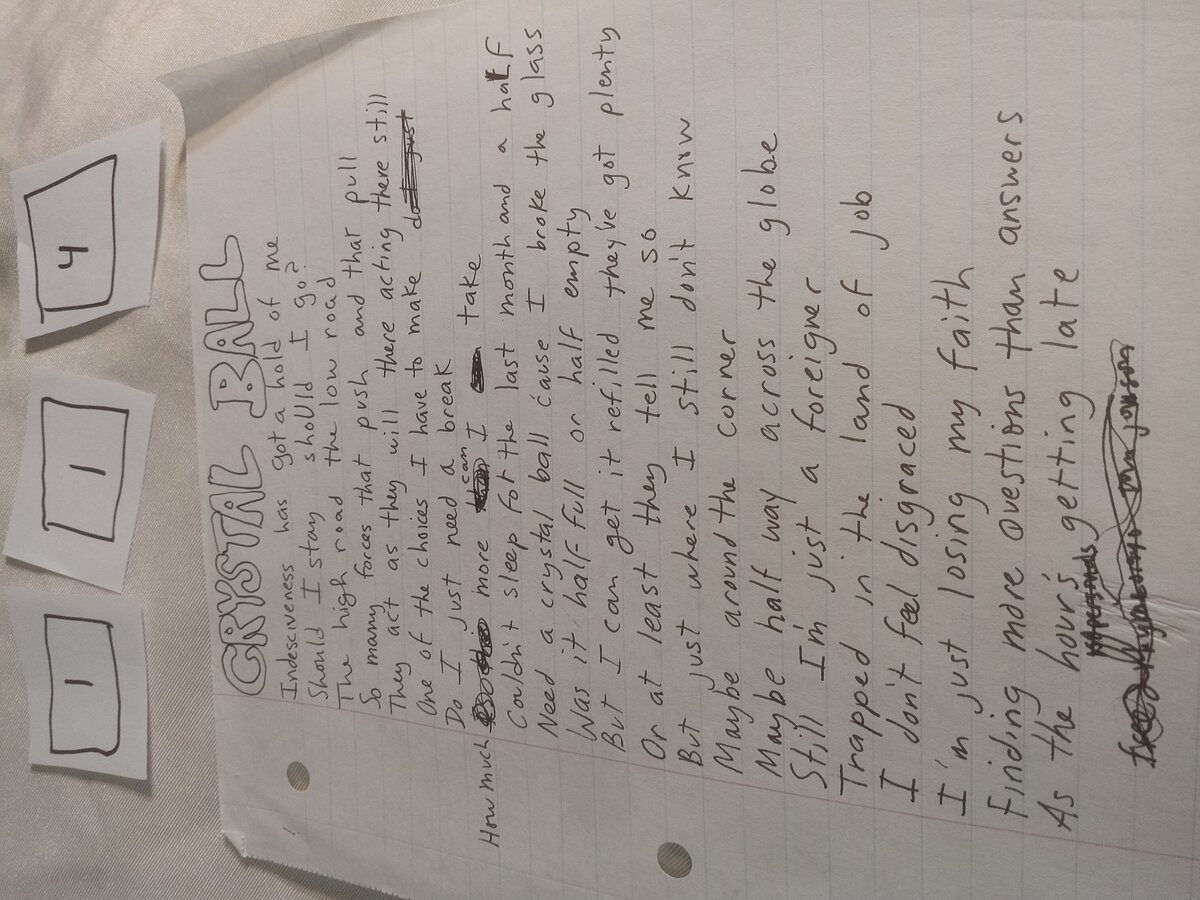 1 1 4
CRYSTAL BALL
Indesciveness has got a hold of me
Should I stay should I go?
The high road the low road
So many forces that push and that pull
They act as they will there acting there still
One of the choices I have to make
Do I just need a break
How much more can I take
Couldn't sleep for the last month and a half
Need a crystal ball 'cause I broke the glass
Was it half full or half empty
But I can get it refilled they've got plenty
Or at least they tell me so
But just where I still don't know
Maybe around the corner
Maybe half way across the globe
Still I'm just a foreigner
Trapped in the land of job
I don't feel disgraced
I'm just losing my faith
Finding more questions than answers
As the hour's getting late